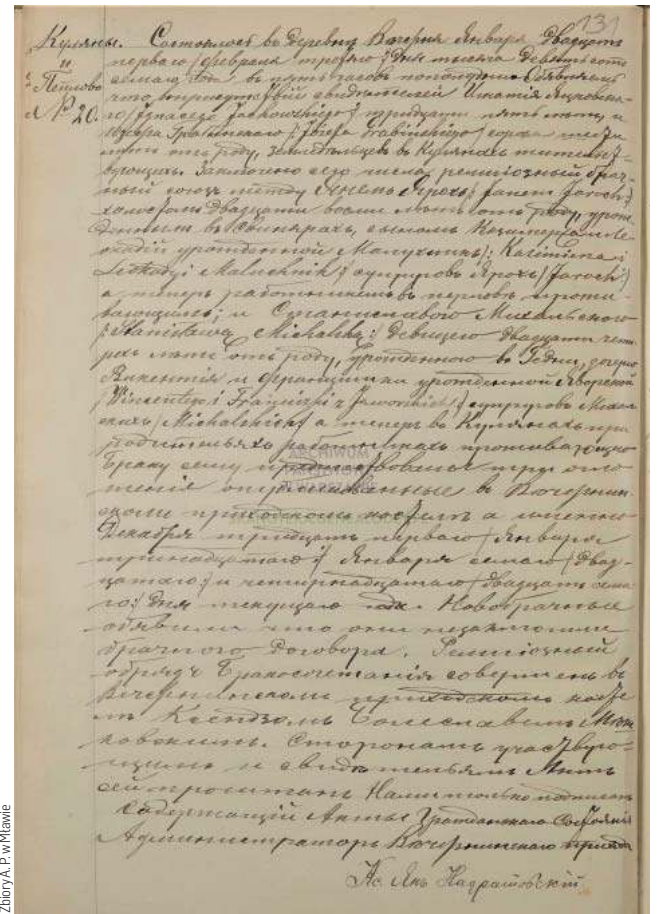 131
Куляны. Состоялось въ деревнѣ Вечерня Января двадцать
и перваго /Февраля третьяго/ дня тысяча девятьсотъ
Пепловo седьмаго года въ пять часовъ пополудни. Объявляемъ
№ 20. что въ присутствіи свидѣтелей Игнатія Яцковска-
го /Ignacego Jackowskiego/ тридцати пяти лѣтъ и
Іосифа Грабинскаго /Józefa Grabińskiego/ сорока
лѣтъ отъ роду, земледѣльцевъ въ Кулянахъ жительст-
вующихъ. Заключено сего числа религіозный брач-
ный союзъ между Яномъ Ярохъ /Janem Jaroch/
холостымъ двадцати восьми лѣтъ отъ роду, урож-
деннымъ въ сыномъ Казимера и Ле-
окадіи урожденной Малухникъ /Kazimierza i
Leokadyi Maluchnik/ супруговъ Ярохъ /Jaroch/
а теперь работникомъ въ прожи-
вающимъ; и Станиславою Михальскою
/Stanisławą Michalską/ девицею двадцати четы-
рехъ лѣтъ отъ роду, урожденною въ дочерью
Викентія и Францишки урожденной Яворской
/Wincentego i Franciszki z Jaworskich/ супруговъ Михаль-
скихъ /Michalskich/ а теперь въ Кулянахъ при
родителяхъ работникахъ проживающею
Браку сему предшествовали три огла-
шенія опубликованныя въ Вечернин-
скомъ приходскомъ костелѣ а именно
Декабря тридцать перваго /Января
тринадцатаго/ Января седьмаго /двад-
цатаго/ и четырнадцатаго /двадцать седьма-
го/ дня текущаго года. Новобрачные
объявили что они незаключили
брачнаго договора. Религіозный
обрядъ бракосочетанія совершенъ въ
Вечернинскомъ приходскомъ косте-
лѣ Ксендзомъ Болеславомъ
Сторонамъ участвую-
щимъ и свидѣтелямъ Актъ
сей прочитанъ Нами только подписанъ
Содержащій Акты Гражданскаго Состоянія
Администраторъ Вечернинскаго прихода
Кс Янъ
ARCHIWUM
PAŃSTWOWE
Zbiory A. P. w Mławie